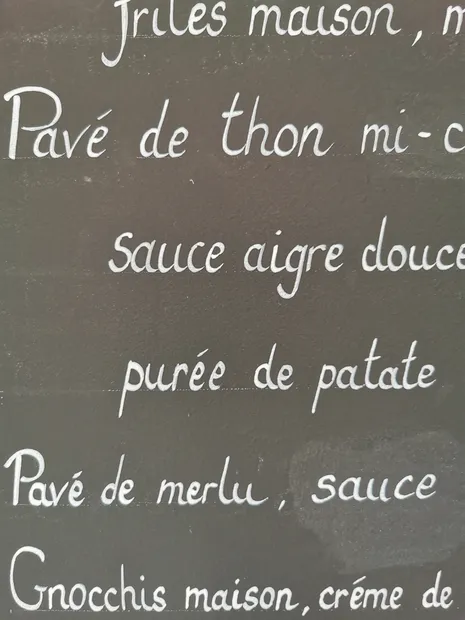 frites maison, m
Pavé de thon mi-c
sauce aigre douce
purée de patate
Pavé de merlu, sauce
Gnocchis maison, créme de